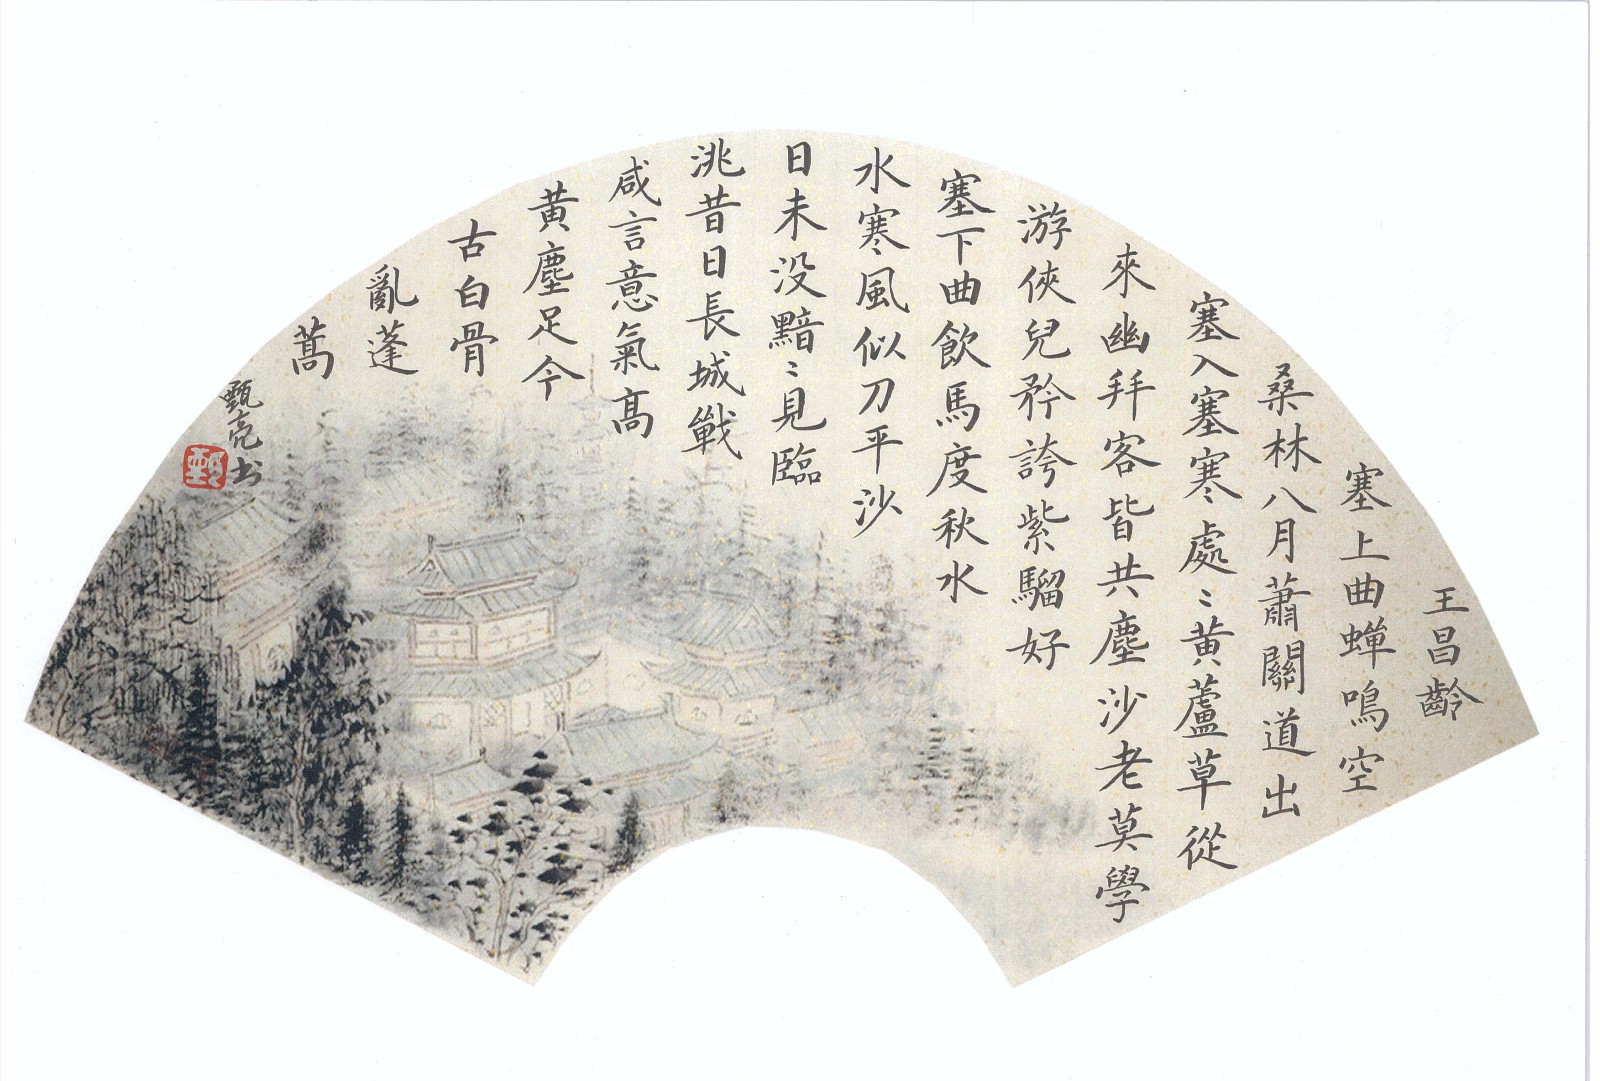 王昌齡
塞上曲蟬鳴空
桑林八月蕭關道出
塞入塞寒處〻黃蘆草從
來幽拜客皆共塵沙老莫學
游俠兒矜誇紫騮好
塞下曲飲馬度秋水
水寒風似刀平沙
日未没黯〻見臨
洮昔日長城戰
咸言意氣高
黃塵足今
古白骨
亂蓬
蒿
甄亮书
甄